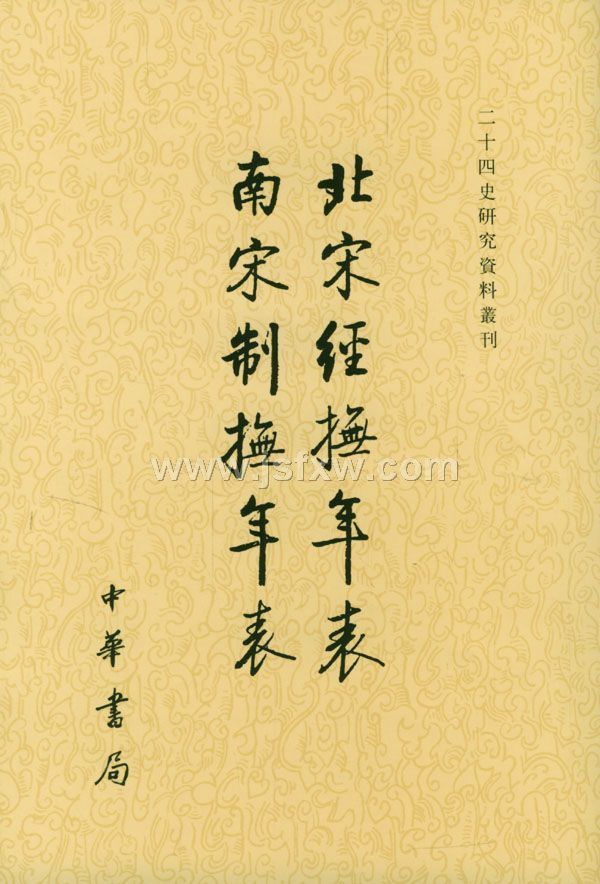 二十四史研究資料叢刊
北宋經撫年表
南宋制撫年表
中華書局
www.jsfxw.com